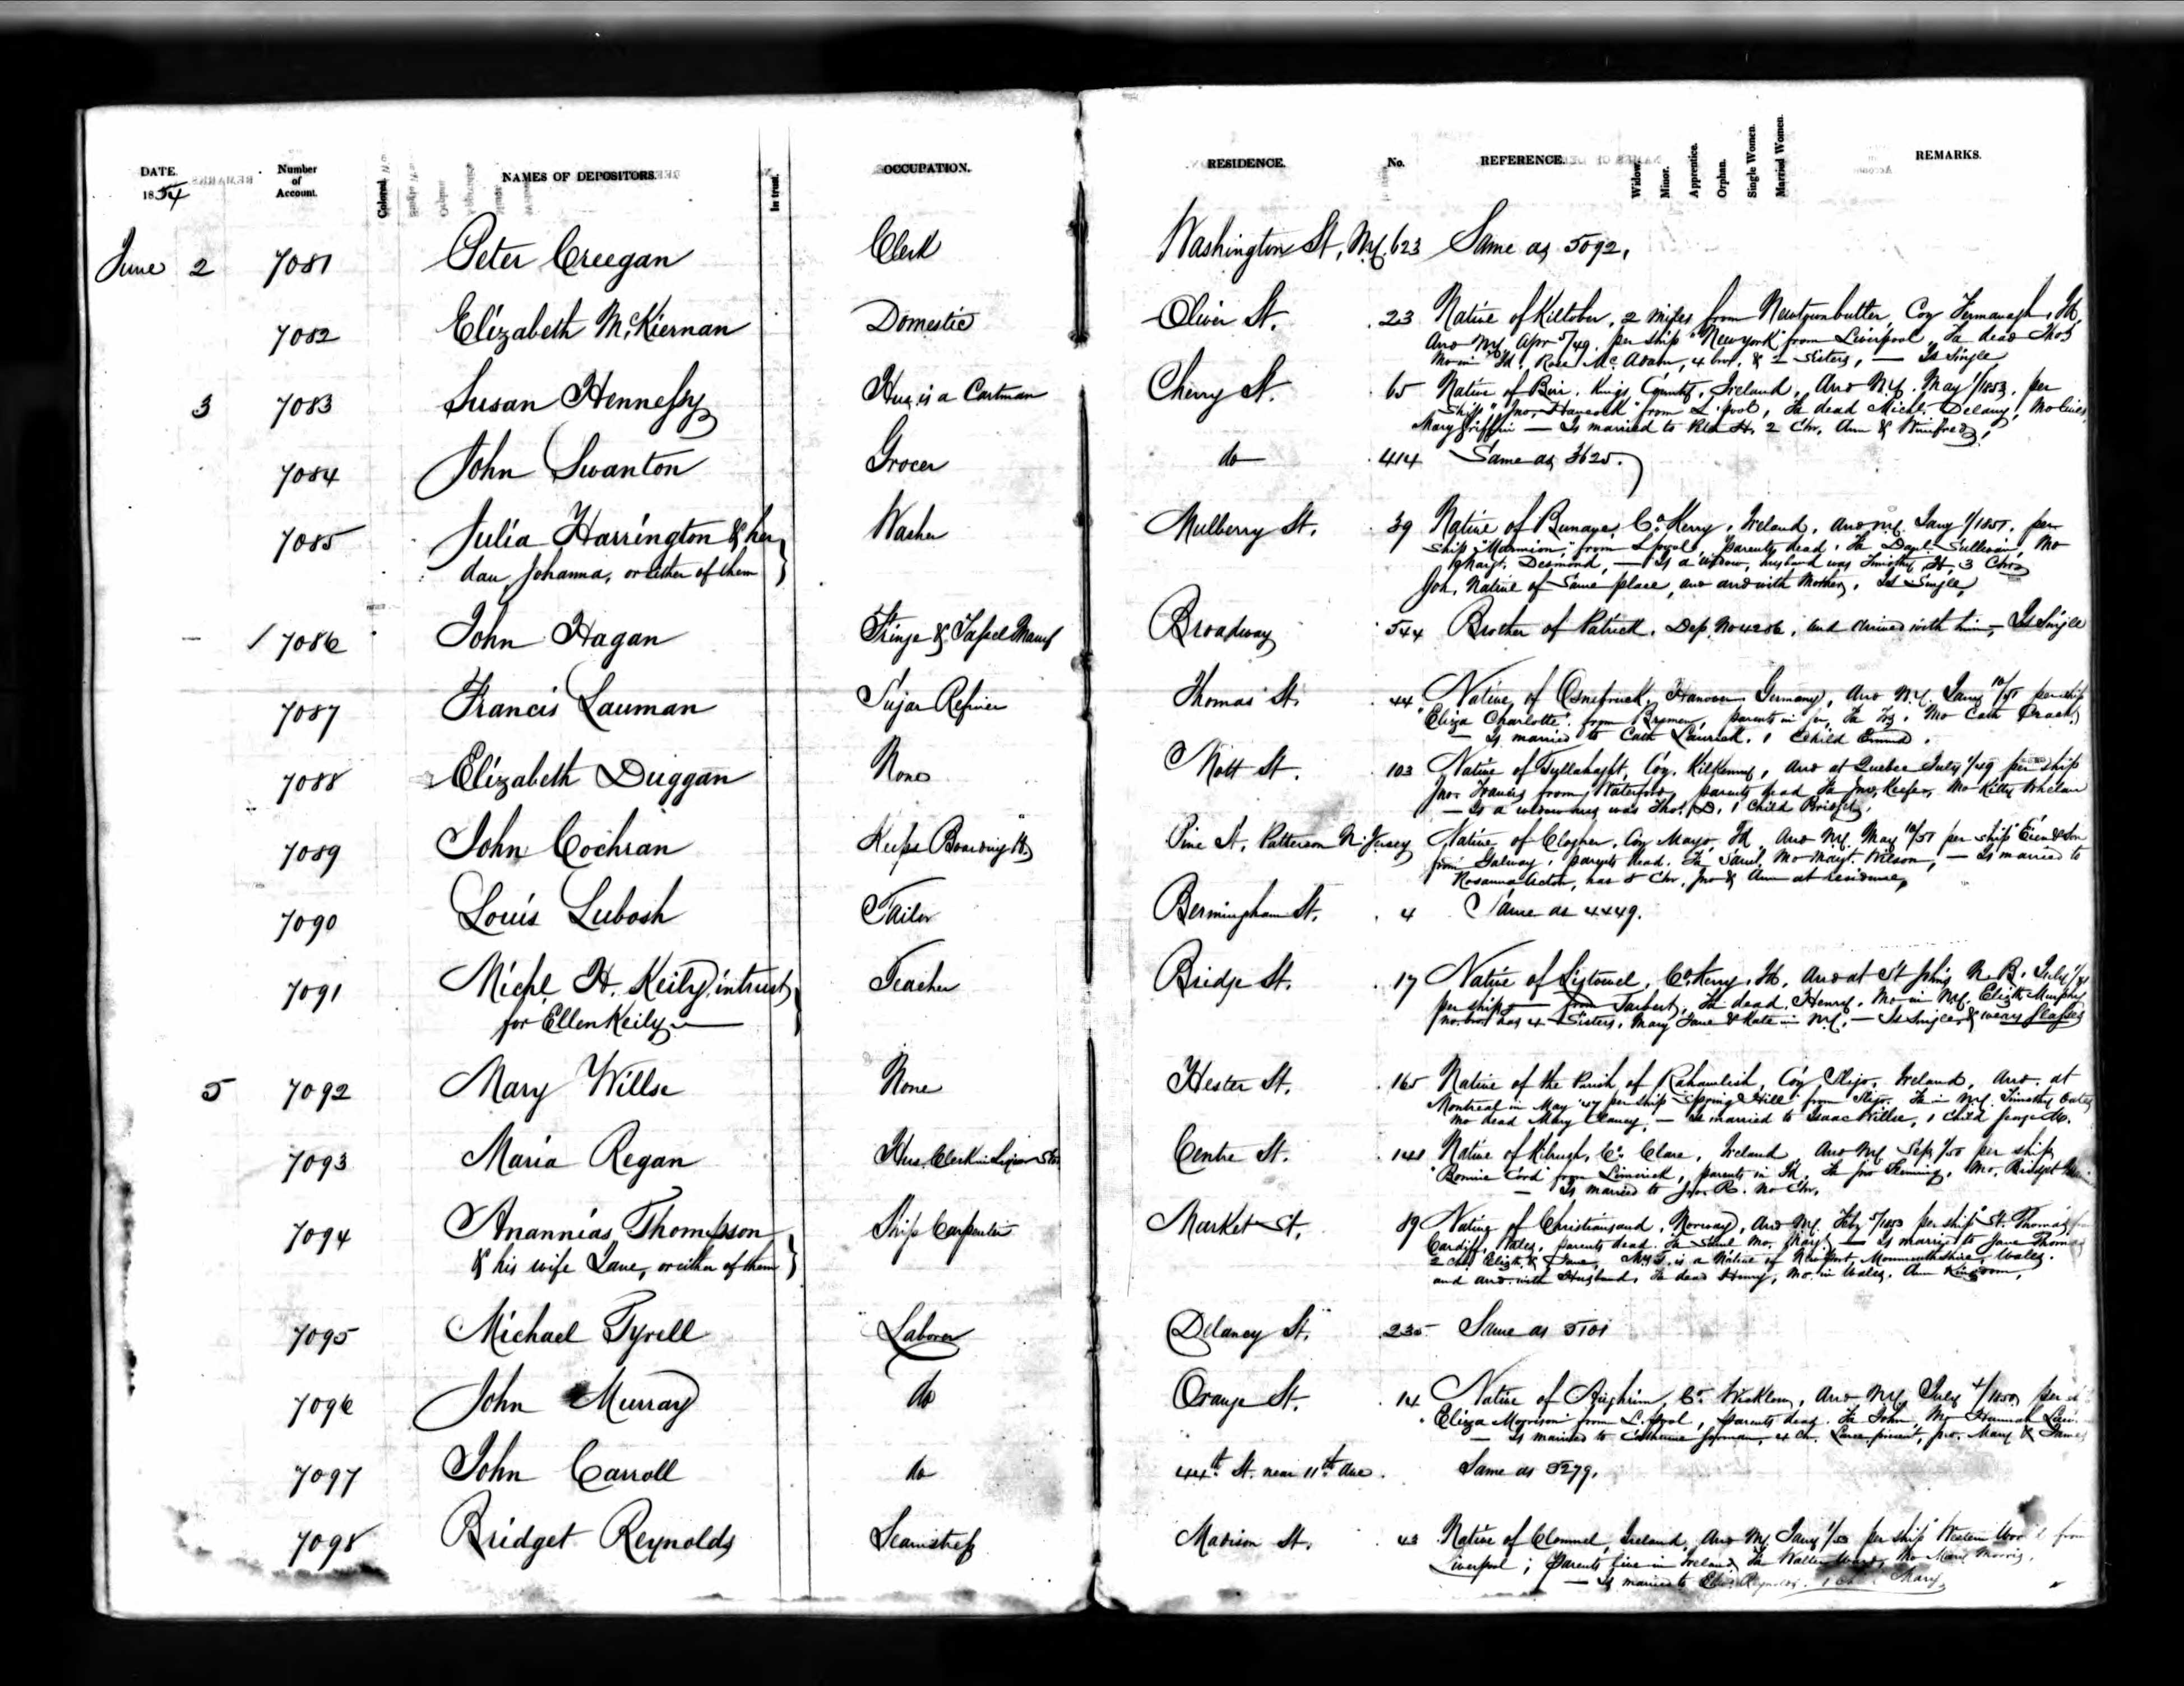 DATE. Number of Account. Colored. NAMES OF DEPOSITORS. In trust. OCCUPATION. RESIDENCE. No. REFERENCE. Widow. Minor. Apprentice. Orphan. Single Women. Married Women. REMARKS.
1854
June 2 7081 Peter Creegan Clerk Washington St, N.Y. 623 Same as 5092.
7082 Elizabeth McKiernan Domestic Oliver St. 23 Native of Kiltober, 2 miles from Newtownbutler, Coy Fermanagh, Id,
Arrd N.Y. Apr 5/49. per ship "New York" from Liverpool, Fa dead Thos
Mo in Id, Rose McAdam, 4 bro. & 2 Sisters, — Is Single
3 7083 Susan Hennessy Hus. is a Cartman Cherry St. 65 Native of Birr, Kings County, Ireland, Arrd N.Y. May 1/1853, per
Ship "Jno. Hancock" from L'pool, Fa dead Michl. Delany, Mo lives,
Mary Griffin — Is married to Rd H. 2 Chr, Ann & Winifred,
7084 John Swanton Grocer do 414 Same as 3625.
7085 Julia Harrington & her Washer Mulberry St. 39 Native of Co. Kerry, Ireland, arrd N.Y. Jany 1/1851, per
dau, Johanna, or either of them
ship "Marmion," from L'pool, parents dead, Fa Danl. Sullivan, Mo
Margt. Desmond, — Is a widow, husband was Timothy H, 3 Chr
Joh, Native of Same place, and arrd with Mother, Is Single,
7086 John Hagan Fringe & Tassel Manuf Broadway 544 Brother of Patrick, Dep. No 4286, and arrived with him, — Is Single
7087 Francis Lauman Sugar Refiner Thomas St. 44 Native of Osnebruck, Hanover Germany, Arrd N.Y. Jany per ship
"Eliza Charlotte" from Bremen, parents in Ger, Fa Mo Cath
— Is married to Cath 1 Child
7088 Elizabeth Duggan None Mott St. 103 Native of Coy. Kilkenny, Arrd at Quebec July 1/49 per ship
Jno. Francis from Waterford, parents dead Fa Jno. Keefe, Mo Kitty Whelan
— Is a widow hus was Thos. D. 1 Child Bridget,
7089 John Cochran Keeps Boarding H. Pine St, Patterson N. Jersey Native of Clogher, Coy Mayo, Id, Arrd N.Y. May 10/51 per ship
from Galway, parents dead. Fa Saml, Mo Margt. Wilson, — Is married to
Rosanna Acton, has 8 Chr, Jno & Ann at residence,
7090 Louis Lubosh Tailor Bermingham St. 4 Same as 4449.
7091 Michl H. Keily, in trust Teacher Bridge St. 17 Native of Listowel, Co. Kerry, Id, Arrd at St Johns N.B. July
for Ellen Keily
per ship — from Tarbert, Fa dead Henry, Mo in N.Y. Elizth Murphy
no. bro. has 4 Sisters, Mary Jane & Kate in N.Y. — Is Single, & wears glasses
5 7092 Mary Willse None Hester St. 165 Native of the Parish of Coy Sligo, Ireland, Arrd. at
Montreal in May '47 per ship from Sligo. Fa in N.Y. Timothy
Mo dead Mary Clancy, — is married to Isaac Willse, 1 child George W.
7093 Maria Regan Hus. Clerk in Liquor Store Centre St. 141 Native of Kilrush, Co. Clare, Ireland, Arrd N.Y. Sep 1/50 per ship
from Limerick, parents in Id, Fa Jno Fleming, Mo, Bridget
— Is married to Jno. R. no Chr,
7094 Anannias Thompson Ship Carpenter Market St. 89 Native of Christiansand, Norway, Arrd N.Y. Feby 5/1853 per ship "St. Thomas"
& his wife Jane, or either of them
Cardiff, Wales, parents dead. Fa Saml Mo, Margt — Is marrd to Jane Thomas
2 chr Elizth & Jane, is a Native of Newport, Monmouthshire, Wales.
and arrd. with Husband, Fa dead Henry, Mo. in Wales. Ann Kingdom,
7095 Michael Tyrell Laborer Delancy St. 235 Same as 5101
7096 John Murray do Orange St. 14 Native of Aughrim, Co. Wicklow, Arrd N.Y. July 4/1850, per
"Eliza Morrison" from L.pool, parents dead. Fa John, Mo Hannah
— Is married to Catherine Gorman, 4 Ch. Jno. Mary & James
7097 John Carroll do 44th St. near 11th Ave. Same as 5279.
7098 Bridget Reynolds Seamstress Madison St. 43 Native of Clonmel, Ireland, Arrd N.Y. Jany 1/53 per ship Western from
Liverpool; Parents live in Ireland Fa Walter Ward, Mo Mary Morris,
— Is married to Reynolds. 1 Ch Mary,